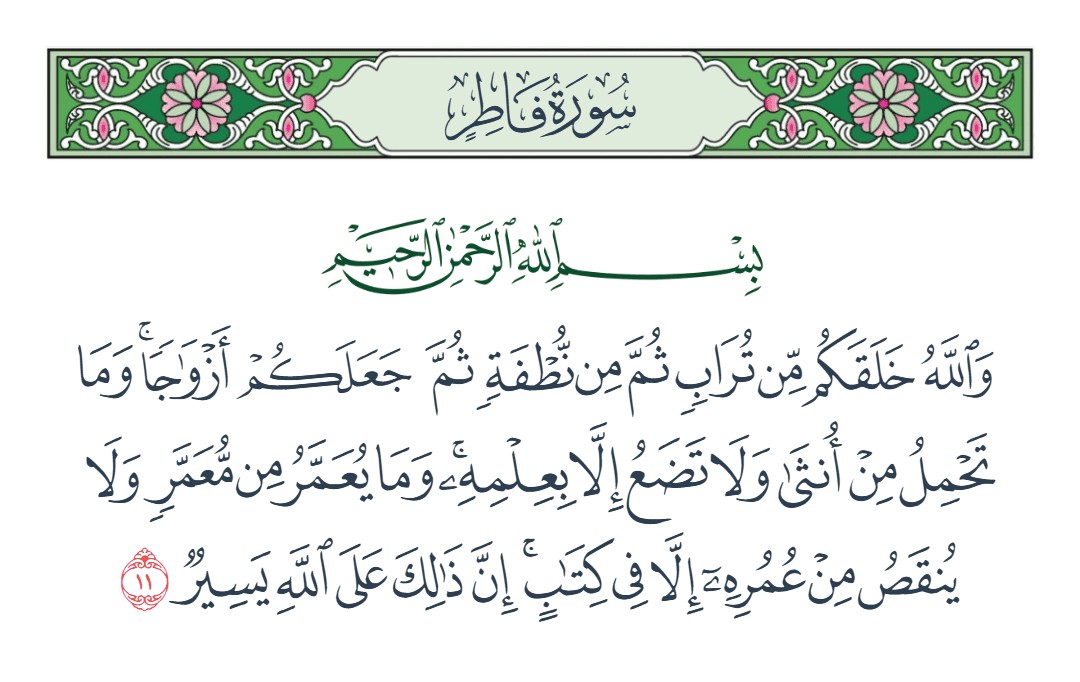 سُورَةُ فَاطِرٍ
بِسْمِ ٱللَّهِ ٱلرَّحْمَٰنِ ٱلرَّحِيمِ
وَٱللَّهُ خَلَقَكُم مِّن تُرَابٖ ثُمَّ مِن نُّطۡفَةٖ ثُمَّ جَعَلَكُمۡ أَزۡوَٰجٗاۚ وَمَا
تَحۡمِلُ مِنۡ أُنثَىٰ وَلَا تَضَعُ إِلَّا بِعِلۡمِهِۦۚ وَمَا يُعَمَّرُ مِن مُّعَمَّرٖ وَلَا
يُنقَصُ مِنۡ عُمُرِهِۦٓ إِلَّا فِي كِتَٰبٍۚ إِنَّ ذَٰلِكَ عَلَى ٱللَّهِ يَسِيرٞ ١١